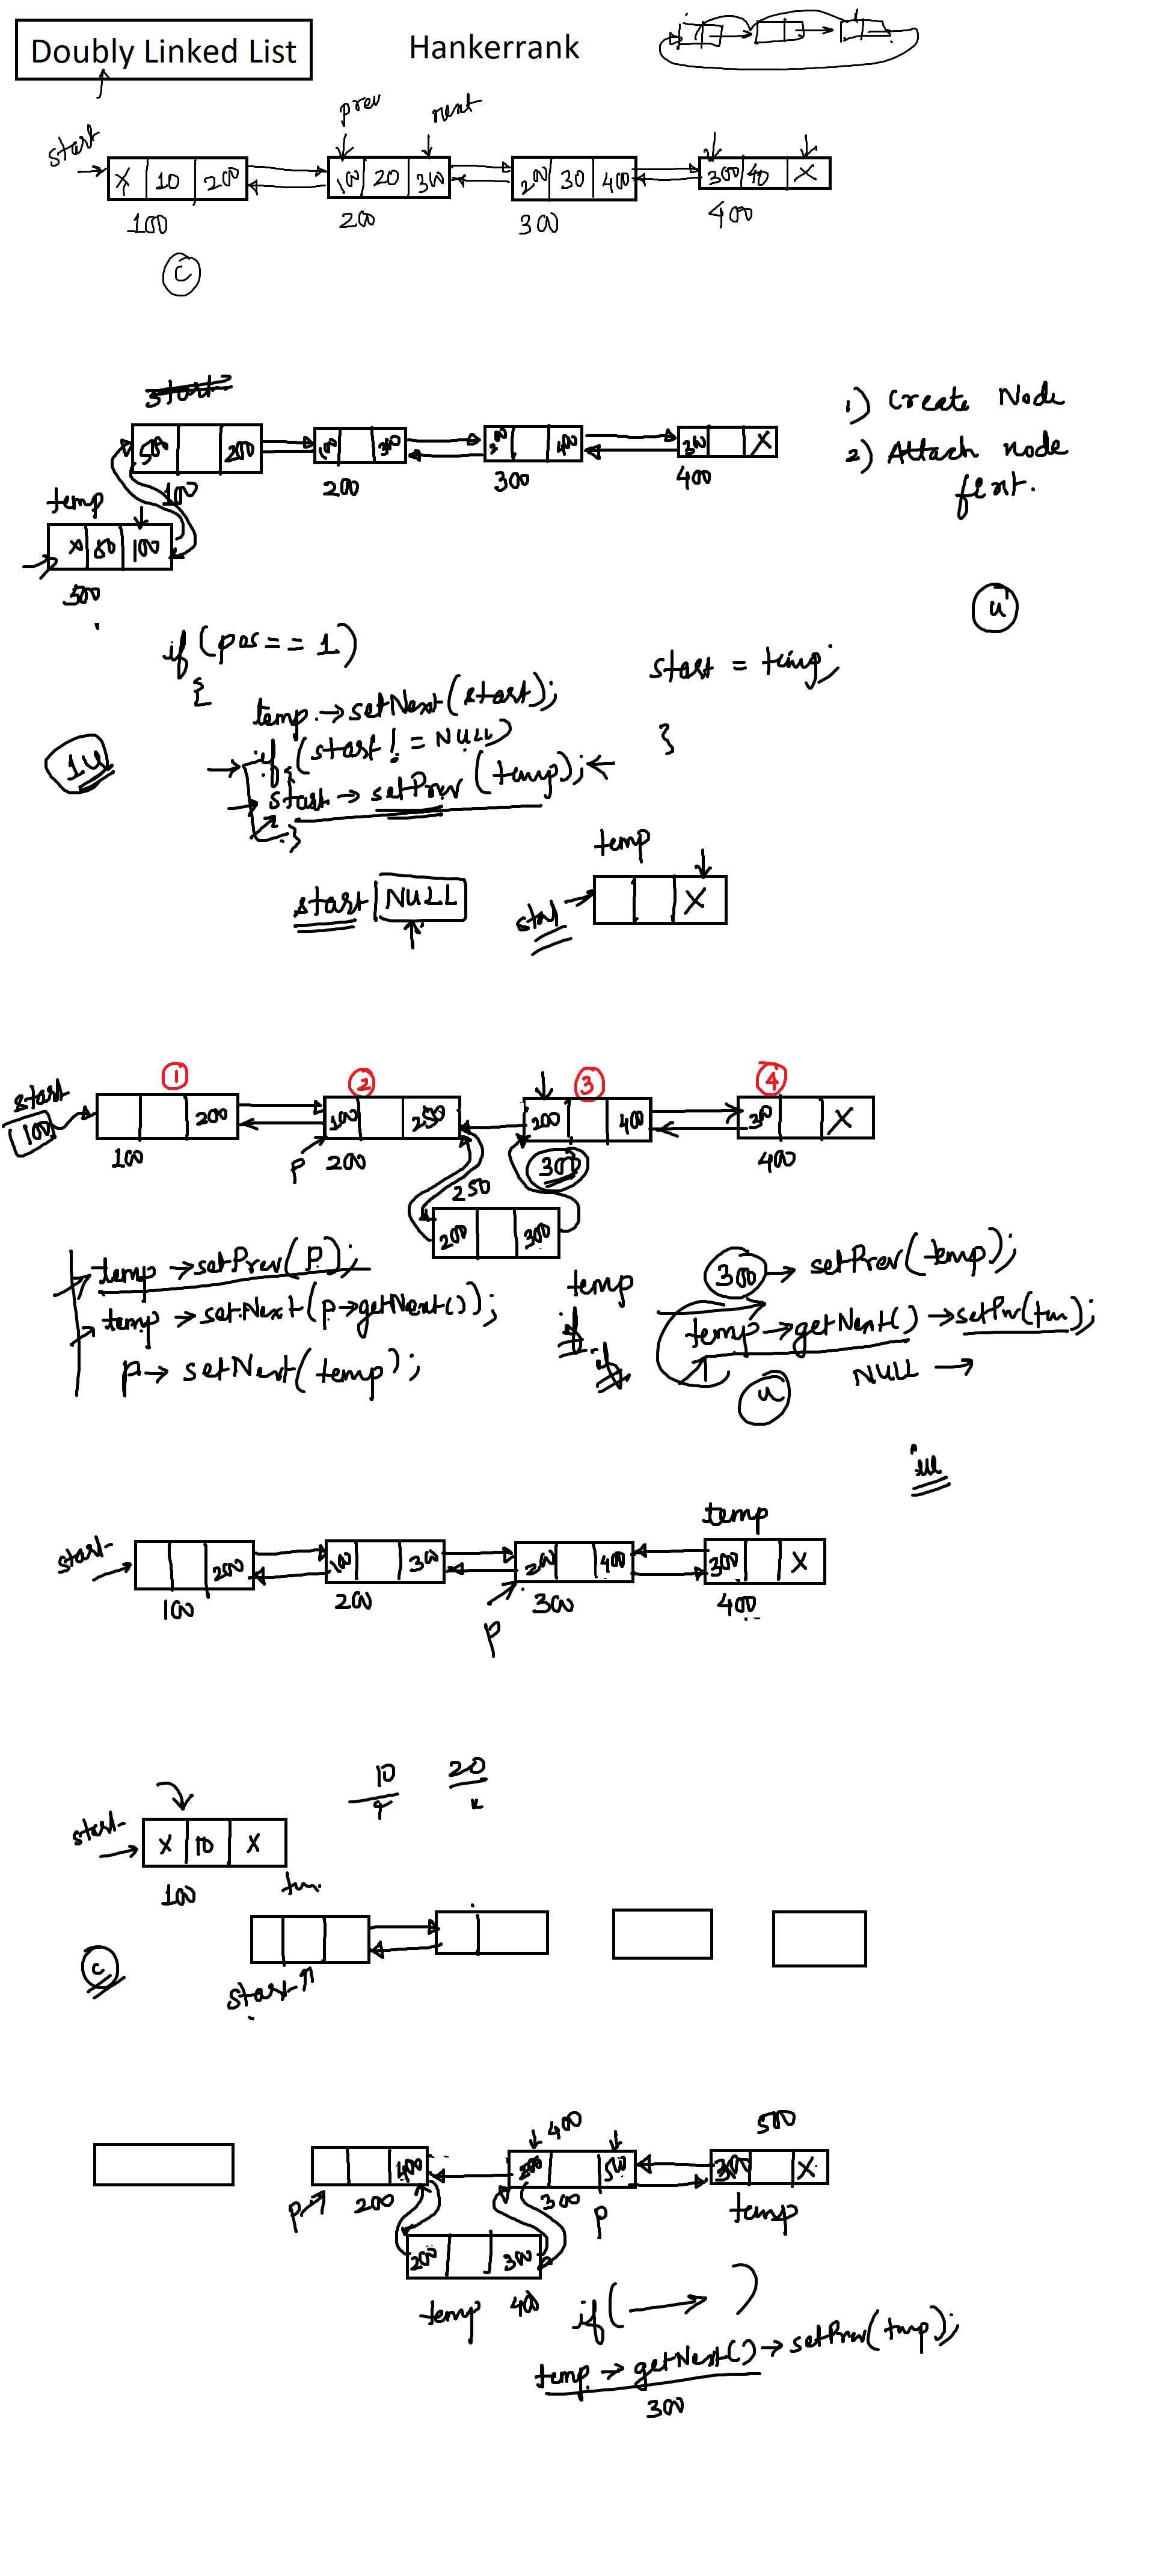 Doubly Linked List
Hankerrank
prev
next
start
X 10 200
100 20 300
200 30 400
300 40 X
100
200
300
400
C
start
500 200
100 300
200 400
300 X
100
200
300
400
1) Create Node
2) Attach node
first.
temp
X 80 100
500
u
if (pos == 1)
{
temp → setNext (start);
start = temp;
if (start != NULL)
{
start → setPrev (temp);
}
}
temp
start NULL
start
X
1 2 3 4
start
100
200
100 250
200 400
300 X
100
P
200
300
400
250
200 300
temp
temp → setPrev(p);
temp → setNext (p → getNext());
p → setNext (temp);
300 → setPrev (temp);
temp → getNext() → setPrv(tm);
NULL →
u
temp
start
200
100 300
200 400
300 X
100
200
300
400
P
10
20
start
X 10 X
100
tm
C
start
400
500
400
500
X
P
200
300
P
temp
200 300
temp
400
if ( → )
temp → getNext() → setPrev(tmp);
300